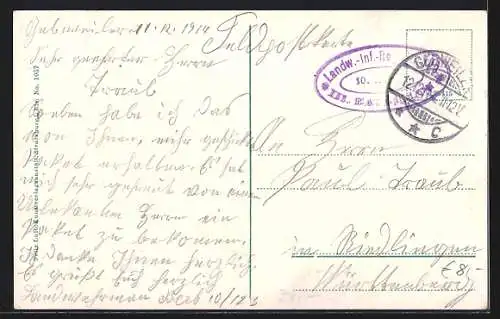 Gebweiler 11.12.1914
Feldpostkarte
Sehr geehrter Herrn
Traub
Soeben habe ich das
von Ihnen, mihr geschickte
Paket erhalten. Es hat
mich sehr gefreut von einem
Unbekante Herrn ein
Paket zu bekommen.
Danke Ihnen herzlich.
Es grüßt Euch herzlich
Landwehrman
Landw.-Inf.-Re
GEBWEILER
C
An Herrn
Paul Traub
in Riedlingen
Württemberg
€8,-